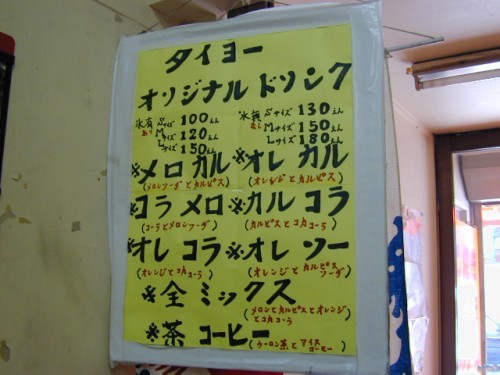 タイヨー
オリジナルドリンク
氷有 Sサイズ 100えん 氷無 Sサイズ 130えん
あり Mサイズ 120えん なし Mサイズ 150えん
Lサイズ 150えん Lサイズ 180えん
※メロカル ※オレカル
(メロンソーダとカルピス) (オレンジとカルピス)
※コラメロ ※カルコラ
(コーラとメロンソーダ) (カルピスとコカコーラ)
※オレコラ ※オレソー
(オレンジとコカコーラ) (オレンジとカルピスソーダ)
※全ミックス
(メロンとカルピスとオレンジとコカコーラ)
※茶コーヒー (ウーロン茶とアイスコーヒー)